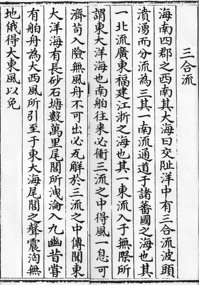 三合流
海南四郡之西南其大海曰交阯洋中有三合流波頭
濆湧而分流為三其一南流通道于諸蕃國之海也其
一北流廣東福建江浙之海也其一東流入于無際所
謂東大洋海也南舶往來必衝三流之中得風一息可
濟苟入險無風舟不可出必瓦解于三流之中傳聞東
大洋海有長砂石塘數萬里尾閭所洩淪入九幽昔嘗
有舶舟為大西風所引至于東大海尾閭之聲震洶無
地俄得大東風以免